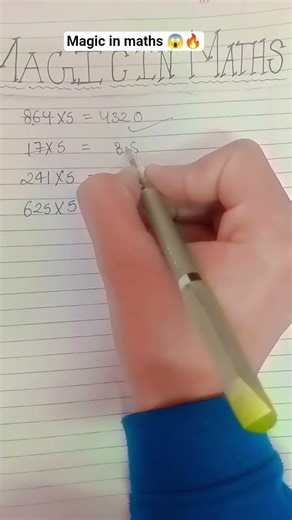 Magic in maths 😱🔥
MAGIC IN MATHS
864 × 5 = 4320
17 × 5 = 8.5
241 × 5 =
625 × 5